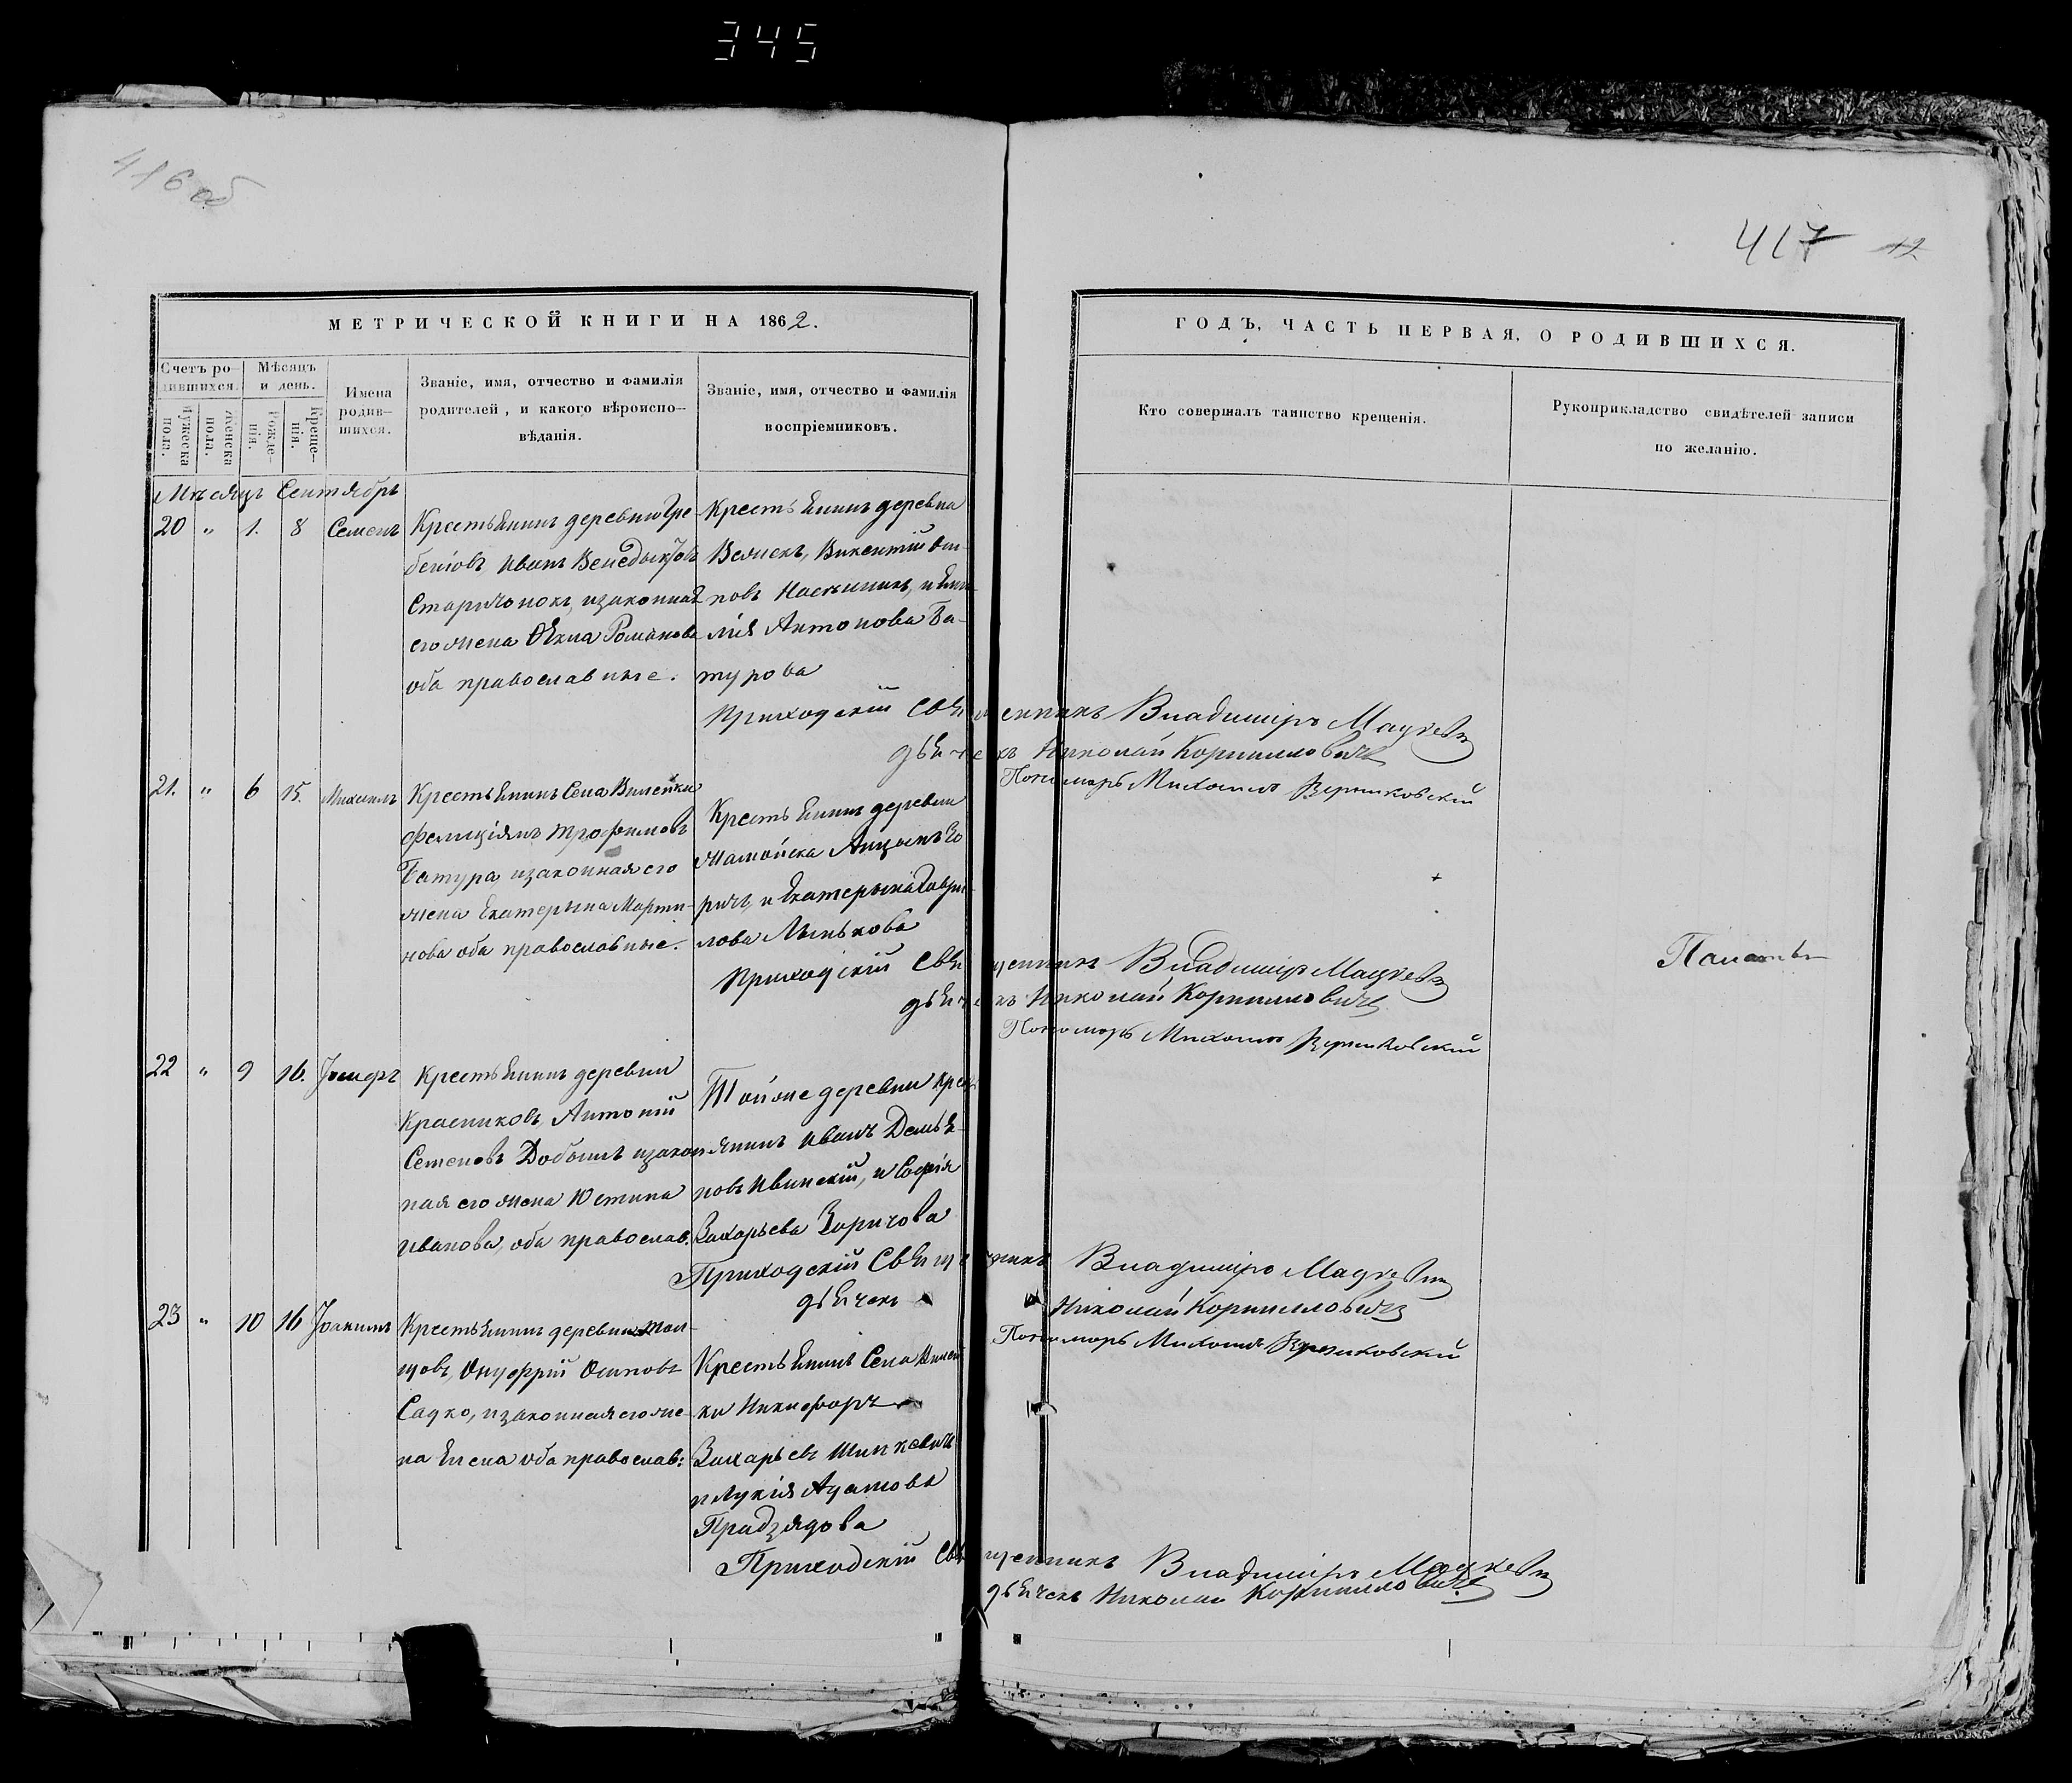 345
416 об
417 12
МЕТРИЧЕСКОЙ КНИГИ НА 1862.
Счетъ родившихся.
Мужеска пола.
Женска пола.
Мѣсяцъ и день.
Рожденія.
Крещенія.
Имена родившихся.
Званіе, имя, отчество и фамилія
родителей, и какого вѣроиспо-
вѣданія.
Званіе, имя, отчество и фамилія
воспріемниковъ.
ГОДЪ, ЧАСТЬ ПЕРВАЯ, О РОДИВШИХСЯ.
Кто совершалъ таинство крещенія.
Рукоприкладство свидѣтелей записи
по желанію.
Мѣсяцъ Сентябрь
20 " 1. 8 Семенъ
Крестьянинъ деревни Гре-
беніовъ, Иванъ Венедыктовъ
Старичонокъ, изаконная
его жена Ѳекла Романова
оба православные.
Крестьянинъ деревни
Викентій Оси-
повъ и Еми-
лія Антонова Ба-
турова
Приходскій Священникъ Владиміръ Мацкевич
дьячекъ Николай Корниловичъ
Пономарь Михаилъ Верниковскій
21. " 6 15. Михаилъ
Крестьянинъ Села Вилейки
Фелиціянъ Трофимовъ
Батура, изаконная его
жена Екатерына Марти-
нова оба православные.
Крестьянинъ деревни
ричъ, и Екатерына Гаври-
лова Лынькова
Приходскій Священникъ Владиміръ Мацкевич
дьячекъ Николай Корниловичъ
Пономарь Михаилъ Верниковскій
22 " 9 16. Іосифъ
Крестьянинъ деревни
Красниковъ, Антоній
Семеновъ Добышъ изакон-
ная его жена Юстина
Иванова, оба православ.
Тойже деревни крест-
янинъ Иванъ Демья-
новъ Ивинскій, и Софія
Захарьева Зоричова
Приходскій Священникъ Владиміръ Мацкевич
дьячекъ Николай Корниловичъ
Пономарь Михаилъ Верниковскій
23 " 10 16 Іоакимъ
Крестьянинъ деревни Жол-
цовъ, Онуфрій Осиповъ
Садко, изаконная его же-
на Елена оба православ:
Крестьянинъ Села Вилей
ки Никифоръ
Захарьевъ Шипкевичъ
и Лукія Адамова
Прадзядова
Приходскій Священникъ Владиміръ Мацкевич
дьячекъ Николай Корниловичъ